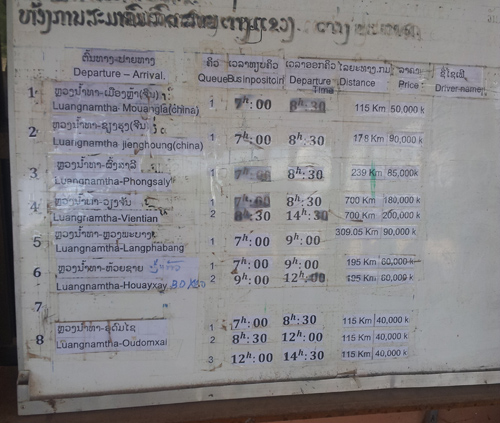 ຕົ້ນທາງ-ປາຍທາງ ຄິວ ເວລາອອກຄິວ ໄລຍະທາງ ກມ ລາຄາ
Departure – Arrival. Queue Departure Time Distance Price Driver name
1 ຫຼວງນ້ຳທາ-ເມືອງຫຼ້າ(ຈີນ)
Luangnamtha-Mouangla(china) 1 7ʰ:00 8ʰ:30 115 Km 50,000 k
2 ຫຼວງນ້ຳທາ-ຊຽງຮຸ່ງ(ຈີນ)
Luangnamtha jienghoung(china) 1 7ʰ:00 8ʰ:30 178 Km 90,000 k
3 ຫຼວງນ້ຳທາ-ຜົ້ງສາລີ
Luangnamtha-Phongsaly 1 7ʰ:00 8ʰ:30 239 Km 85,000k
4 ຫຼວງນ້ຳທາ-ວຽງຈັນ 1 7ʰ:00 8ʰ:30 700 Km 180,000 k
Luangnamtha-Vientian 2 8ʰ:30 14ʰ:30 700 Km 200,000 k
5 ຫຼວງນ້ຳທາ-ຫຼວງພະບາງ 309.05 Km 90,000 k
Luangnamtha-Langphabang 1 7ʰ:00 9ʰ:00
6 ຫຼວງນ້ຳທາ-ຫ້ວຍຊາຍ 1 7ʰ:00 9ʰ:00 195 Km 60,000 k
Luangnamtha-Houayxay 2 9ʰ:00 12ʰ:00 60,000 k
7
8 ຫຼວງນ້ຳທາ-ອຸດົມໄຊ 1 7ʰ:00 8ʰ:30 115 Km 40,000 k
Luangnamtha-Oudomxai 2 8ʰ:30 12ʰ:00 115 Km 40,000 k
3 12ʰ:00 14ʰ:30 115 Km 40,000 k